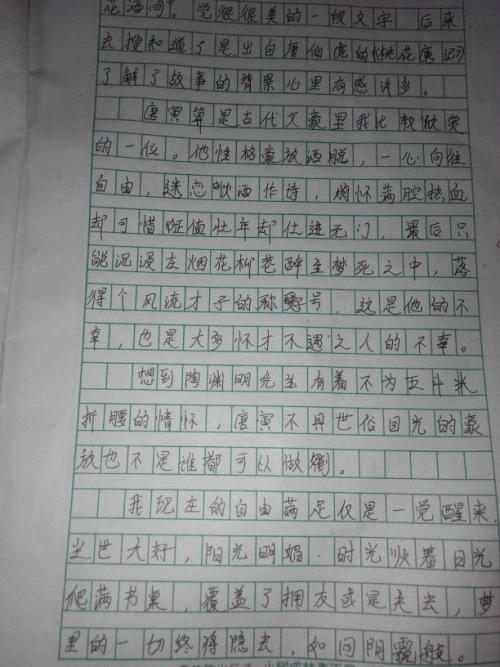 花酒间?觉很很美的一段文字,后来
去搜知道了是出自唐伯虎的《桃花庵记》
了解了故事的背景心里有感许多。
唐寅算是古代文豪里我比较欣赏
的一位。他性格豪放洒脱,一心向往
自由,迷恋饮酒作诗,胸怀满腔热血
却可惜正值壮年却仕途无门,最后只
能沉浸在烟花柳巷醉生梦死之中,落
得个风流才子的称号,这是他的不
幸,也是大多怀才不遇之人的不幸。
想到陶渊明先生有着不为五斗米
折腰的情怀,唐寅不具世俗目光的豪
放也不是谁都可以做到。
我现在的自由满足仅是一觉醒来
尘世大好,阳光明媚.时光顺着日光
爬满书桌,覆盖了拥友或是失去,梦
里的一切终将隐去,如同阴霾般。